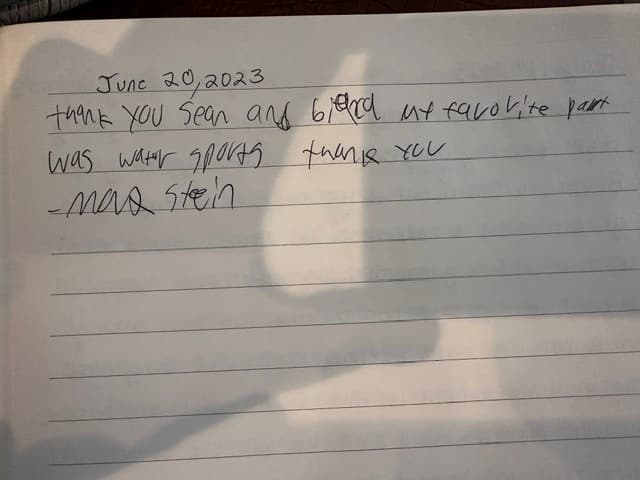 June 20, 2023
thank you Sean and my favorite part
was water sports thank you
- Stein